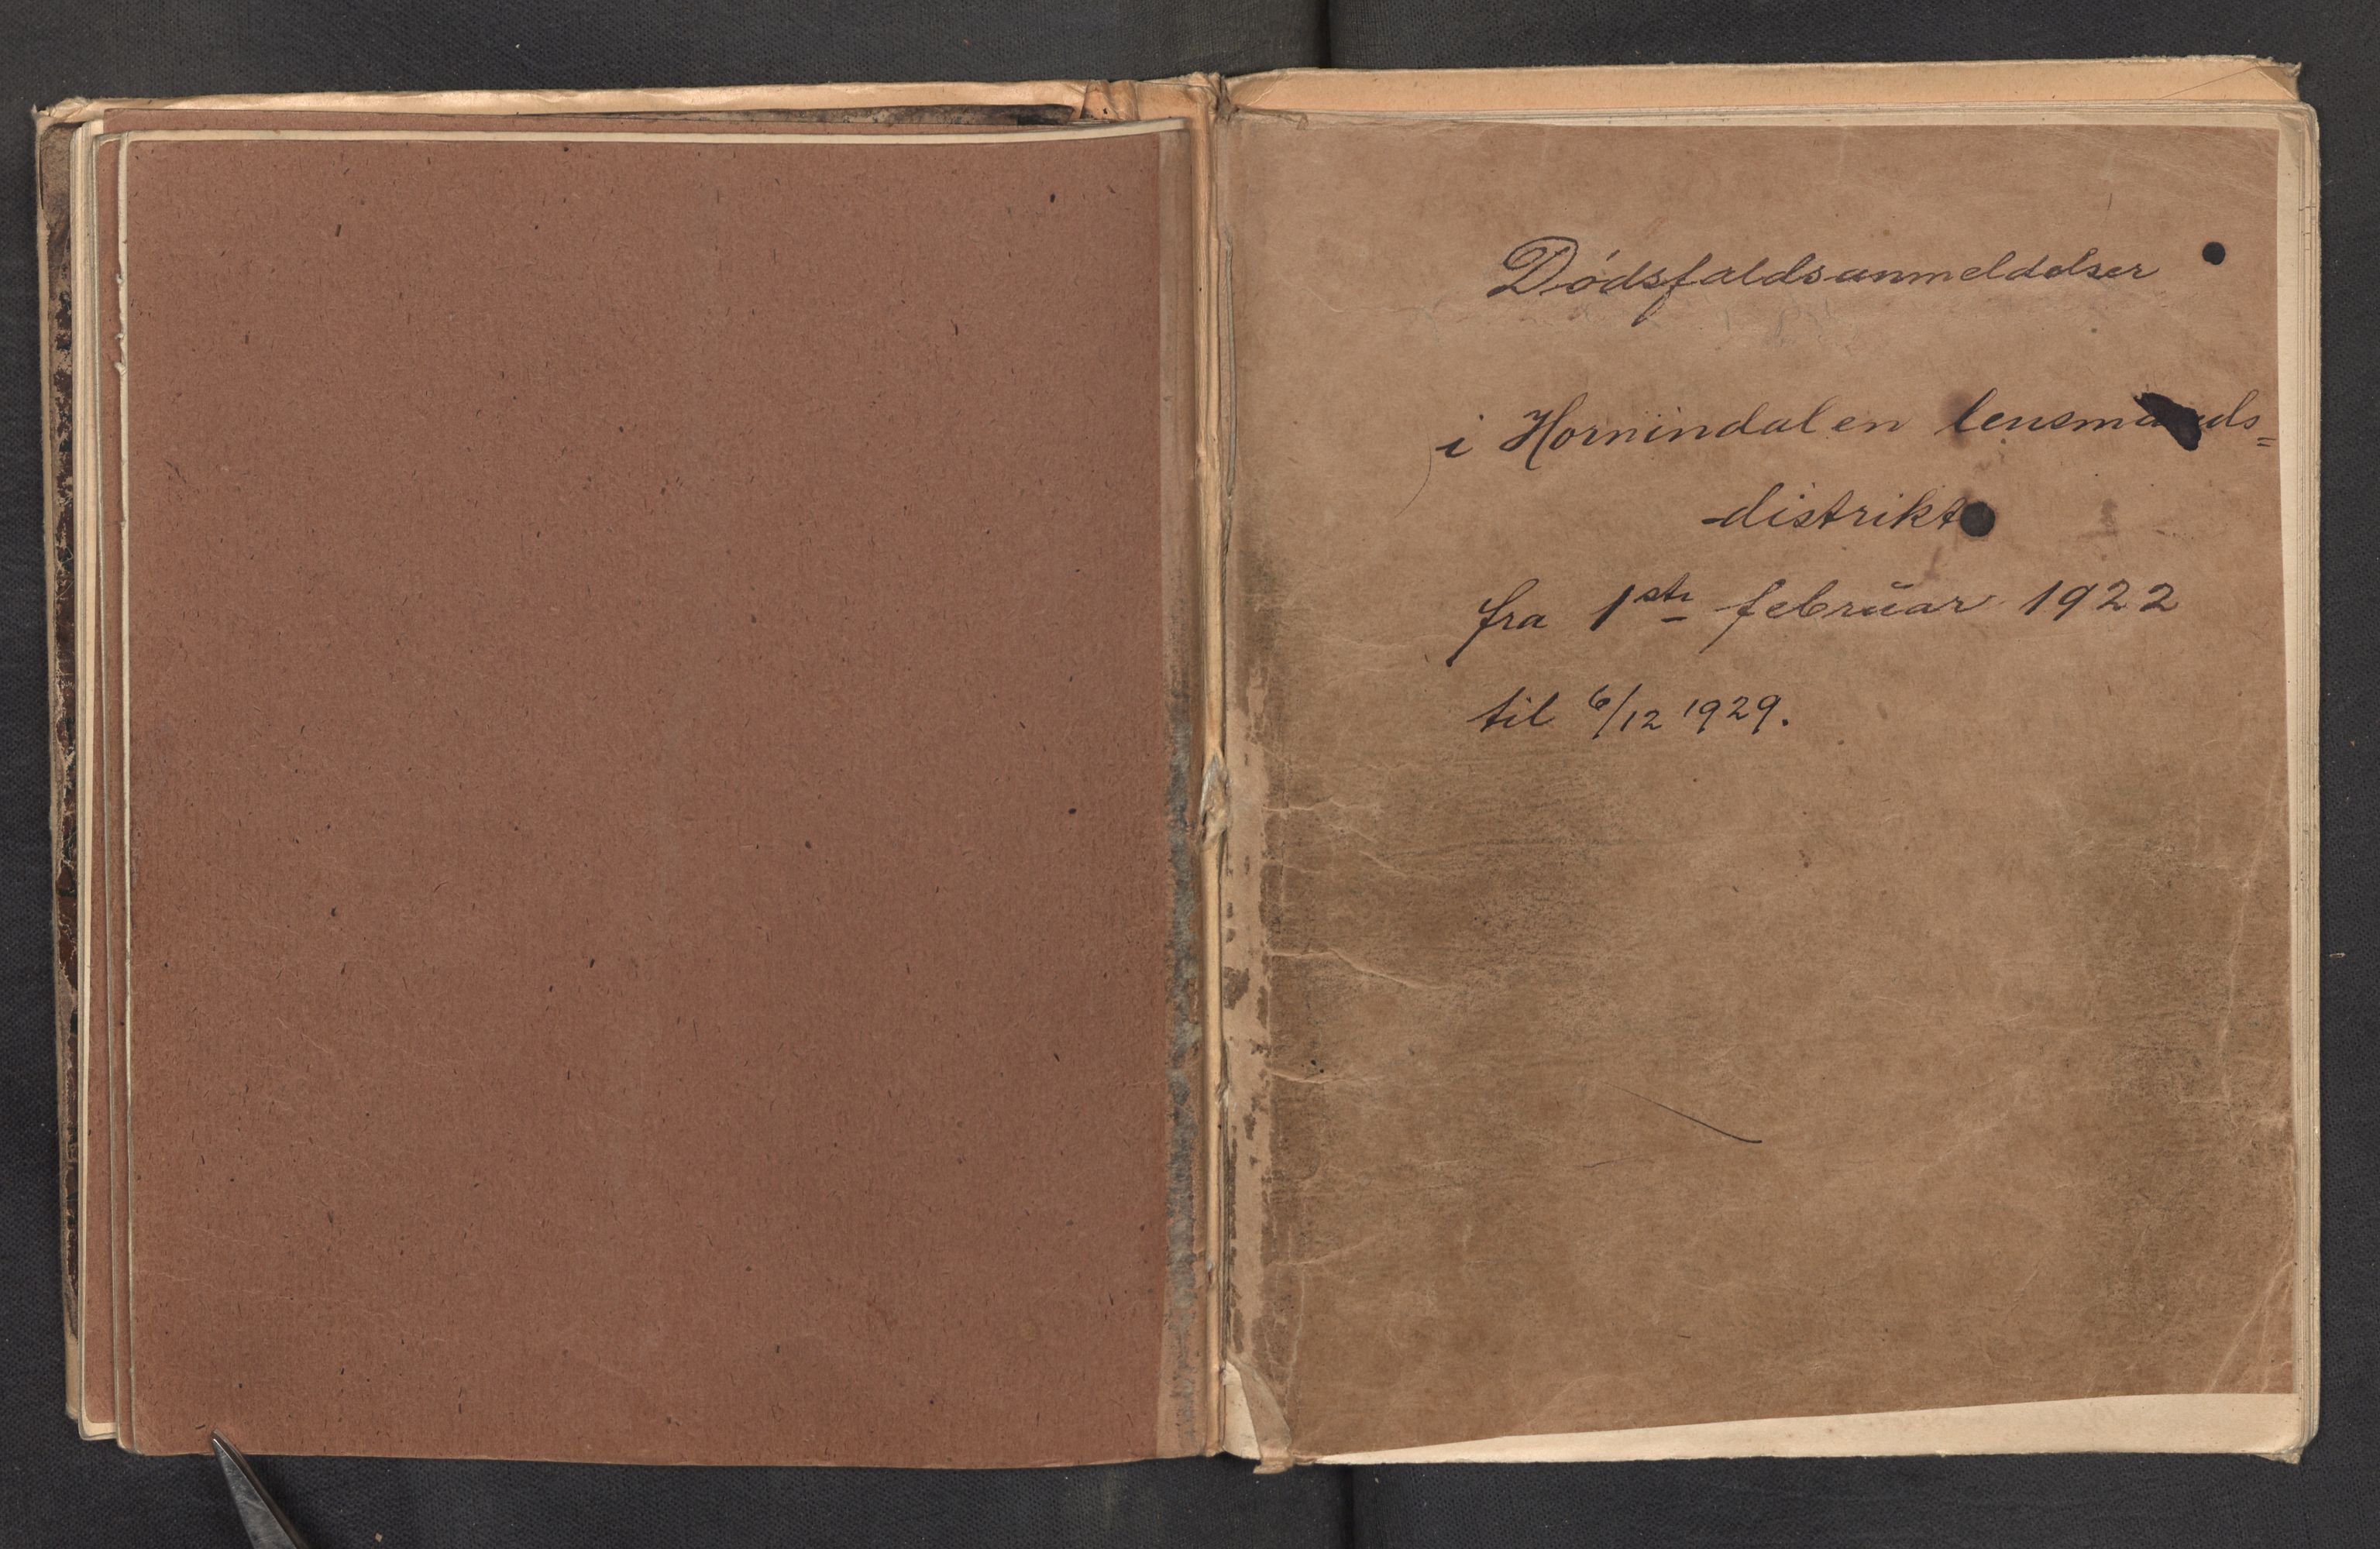 Dødsfaldsanmeldelser
i Hornindalen lensmands=
distrikt
fra 1ste februar 1922
til 6/12 1929.